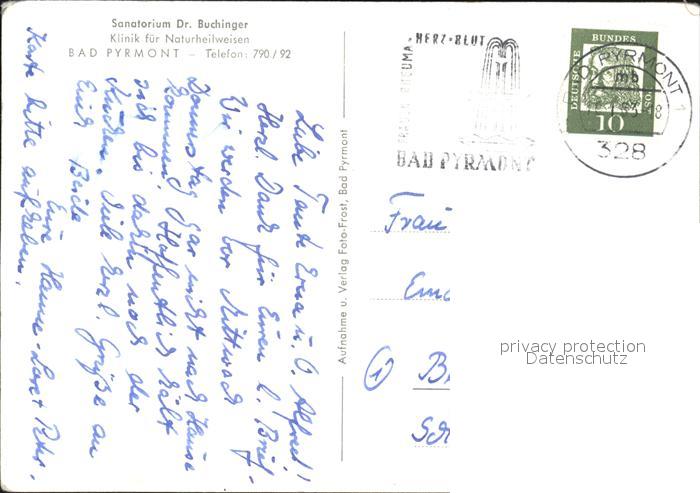 Sanatorium Dr. Buchinger
Klinik für Naturheilweisen
BAD PYRMONT – Telefon: 790/92
Liebe Tante Erna u. O. Alfred!
Herzl. Dank für Euren l. Brief.
Wir werden vor Mittwoch
Donnerstag gar nicht nach Hause
kommen. Hoffentlich hält
sich bis dahin noch der
Kuchen. Viele herzl. Grüße an
Euch Beide
Eure Hanne-Lore +
Karte bitte aufheben.
Aufnahme u. Verlag Foto-Frost, Bad Pyrmont
HERZ-BLUT
RHEUMA
BAD PYRMONT
DEUTSCHE
BUNDES
10
PYRMONT 1
mb
328
Frau
(1)
privacy protection
Datenschutz